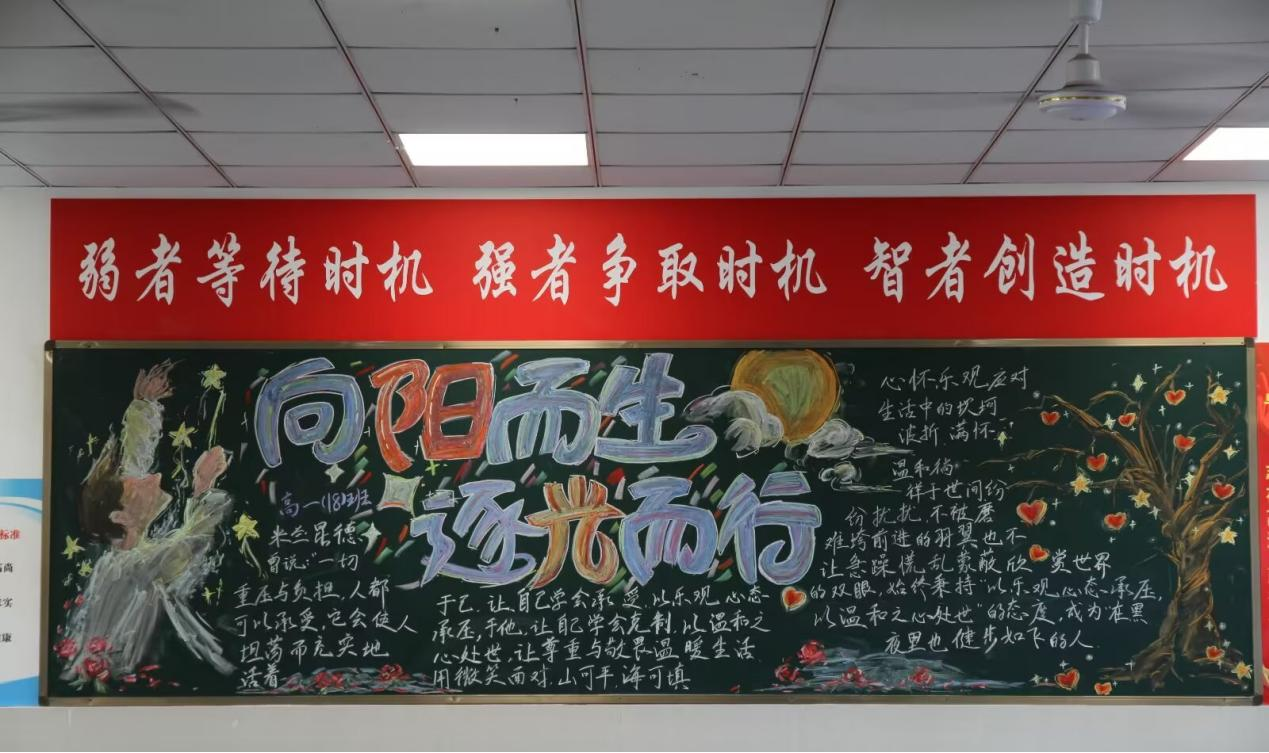 弱者等待时机 强者争取时机 智者创造时机
向阳而生
逐光而行
高一(18)班
米兰昆德
曾说:“一切
重压与负担,人都
可以承受,它会使人
坦荡而充实地
活着
于己,让自己学会承受,以乐观心态
承压,于他,让自己学会克制,以温和之
心处世,让尊重与敬畏温暖生活.
用微笑面对.山可平.海可填
心怀乐观应对
生活中的坎坷
波折,满怀
温和徜
徉于世间纷
纷扰扰,不被磨
难垮前进的羽翼也不
让急躁慌乱蒙蔽欣赏世界
的双眼,始终秉持“以乐观心态承压,
以温和之心处世”的态度,成为在黑
夜里也健步如飞的人.
标准
康